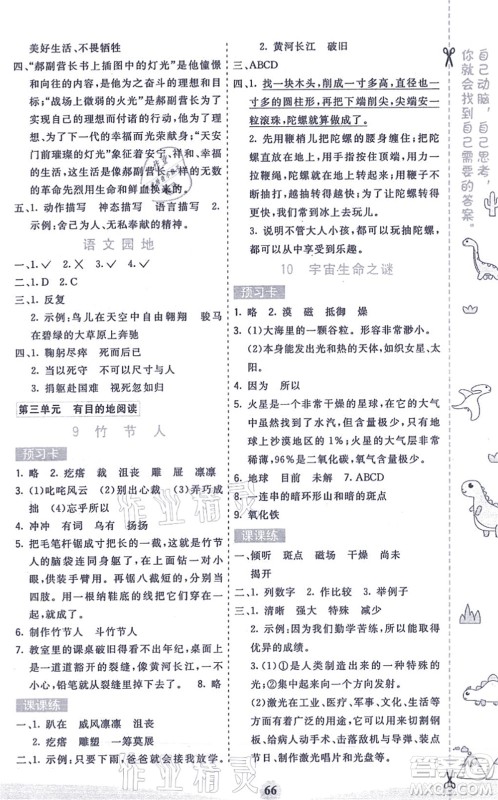 美好生活、不畏牺牲
四、“郝副营长书上插图中的灯光”是他憧憬
和向往的内容，是他为之奋斗的理想和目
标；“战场上微弱的火光”是郝副营长为了
实现自己的理想而付诸的行动，他为了理
想、为了幸福而光荣献身；“天安
门前璀璨的灯光”象征着安宁、祥和、幸
福的生活，这灯光是无数个像郝副营长那
样的革命先烈用鲜血和生命换来的。
五、1. 动作描写　神态描写　语言描写
2. 示例：舍己为人、无私奉献的精神。
语文园地
一、1. ✓　2. ✗　3. ✓　4. ✓
二、1. D　2. C
三、1. 反复
2. 示例：鸟儿在天空中自由翱翔　骏马
在碧绿的大草原上奔驰
四、1. 鞠躬尽瘁　死而后已
2. 当以死守　不可以尺寸与人
3. 捐躯赴国难　视死忽如归
第三单元　有目的地阅读
9 竹节人
预习卡
1. 略　2. 疙瘩　裁　沮丧　雕　屉　凛凛
3. (1)叱咤风云　(2)别出心裁　(3)弄巧成
拙
4. 冲冲　有词　勾勾　扬扬
5. 把毛笔杆锯成寸把长的一截，这就是竹节
人的脑袋连同身躯了，在上面钻一对小
眼，供装手臂用。再锯八截短的，当四
肢。用一根纳鞋底的线穿在一起。
6. 制作竹节人　斗竹节人
7. 教室里的课桌破旧得看不出年纪，桌面上
是一道道豁开的裂缝，像黄河长江。　8. 略
课课练
一、1. 趴在　威风凛凛　沮丧
2. 疙瘩　雕塑　一筹莫展
二、1. 示例：爸爸在单位门口接我放学。
2. 黄河长江　破旧
三、ABCD
四、1. 找一块木头，削成一寸多高，直径也有一寸
多的圆柱形，再把下端削尖，尖端安一
粒滚珠，陀螺就算做成了。
2. 先用鞭梢儿把陀螺的腰身缠住，
然后使陀螺直立在地上，用鞭子
不断抽打，陀螺转得越来越快。
3. 示例：不管大人小孩，都可以抽陀螺，并
从中享受到乐趣。
10　宇宙生命之谜
预习卡
1. 略　2. 漠　磁　抵御　燥
3. (1)大海里的一颗谷粒。形容极其渺小。
(2)本身能发出光和热的天体，如织女星、太
阳。
4. 因为　所以
5. 火星是一个非常干燥的星球，在它的大气
中虽然找到了水汽，但含量极少，只有地
球上沙漠地区的1%。火星的大气中
96%是二氧化碳，氧气含量极少。
6. 地球　目前　未解　7. ABCD
8. 一连串的暗环形山和暗的斑点
9. 氧化铁
课课练
一、倾听　斑点　磁场　干燥　尚未
揭开
二、1. 列数字　2. 作比较　3. 举例子
三、1. 清晰　增强　特殊　减少
2. 示例：因为我们勤学苦练，所以取得了
优异的成绩。
3. (1)①是人类了解最多的星球
②是否有生命存在，是一个谜
(2)激光在工业、医疗、军事、文化方面都
有着广泛的应用，它可以用来切割钢
板，也可以用来击落敌机，还可以用来
制作激光唱片和光盘等。
66
自己动脑，自己思考，
你就会找到自己需要的答案。
作业精灵
作业精灵
答案圈
MXQE.COM